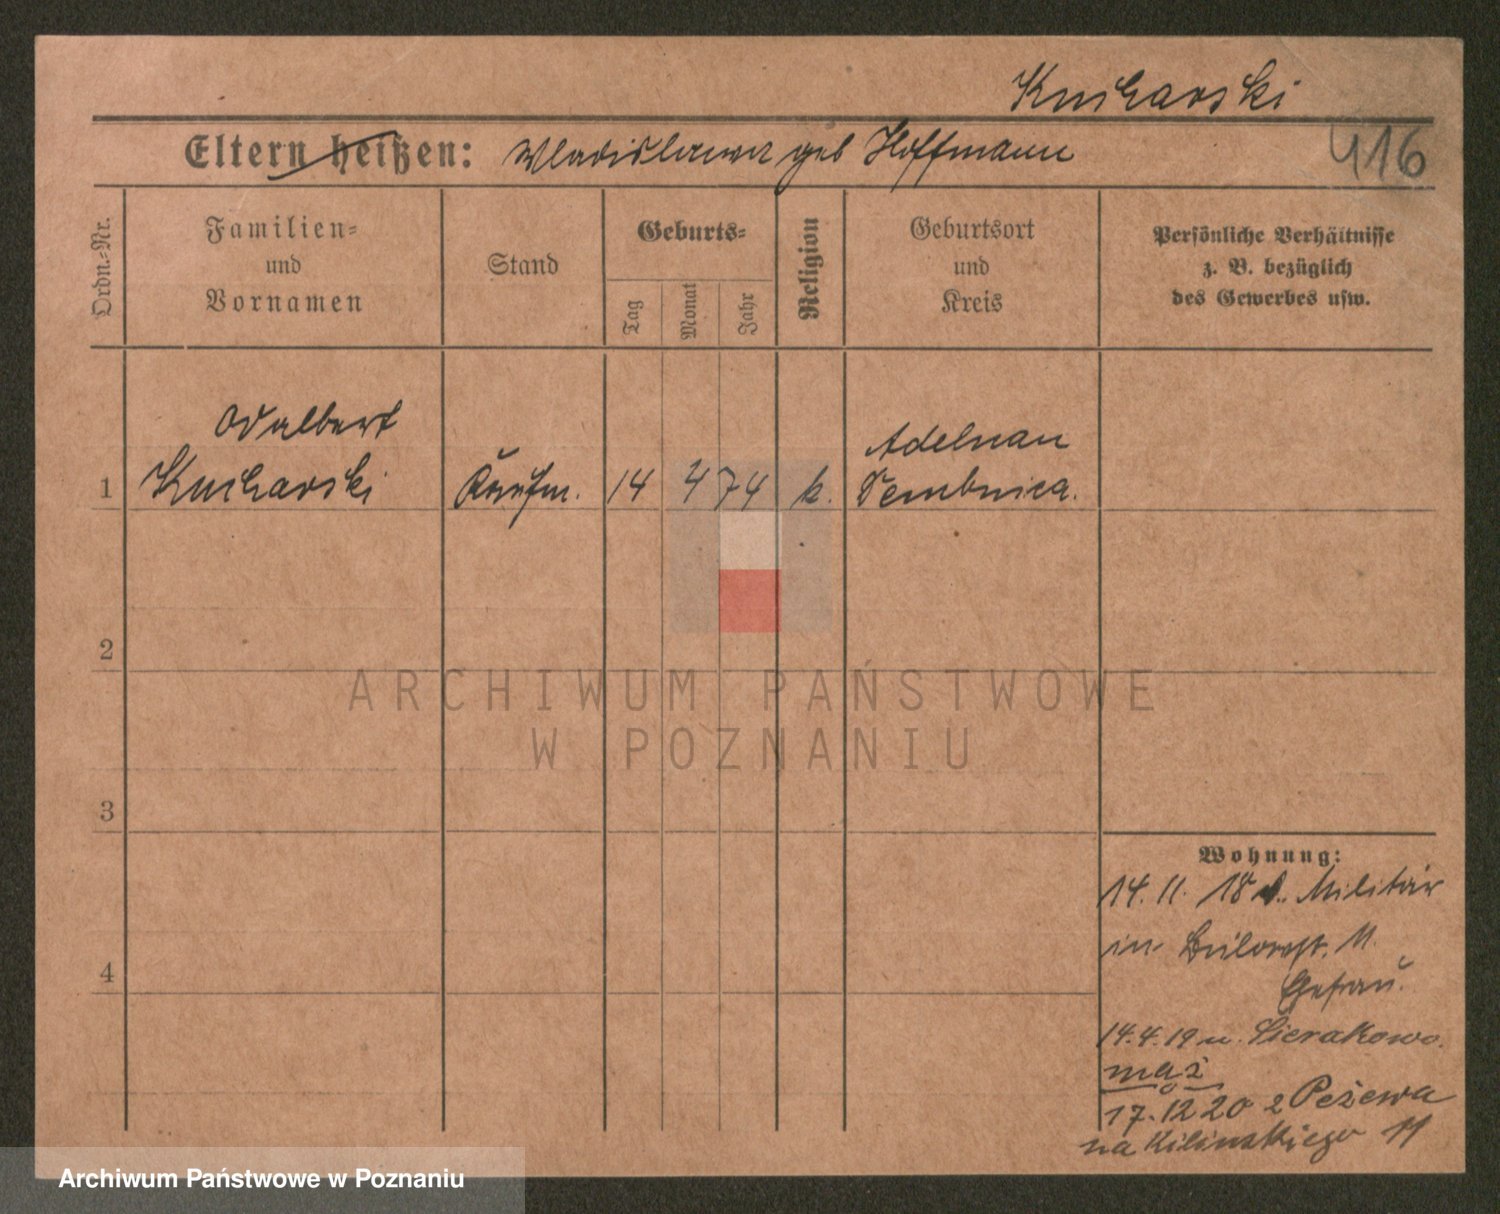 Kucharski
Eltern heißen: Wladislawa geb Hoffmann
416
Ordn.-Nr.
Familien-
und
Vornamen
Stand
Geburts-
Tag
Monat
Jahr
Religion
Geburtsort
und
Kreis
Persönliche Verhältnisse
z. B. bezüglich
des Gewerbes usw.
Adalbert
Adelnau
1 Kucharski Kaufm. 14 4 74 k. Dembnica.
2
ARCHIWUM PAŃSTWOWE
W POZNANIU
3
Wohnung:
14. 11. 18 Militär
in Bülowst. 11
4
14.4.19 u. Sierakowo.
mąż
17.12 20 z
na Kilinskiego 11
Archiwum Państwowe w Poznaniu